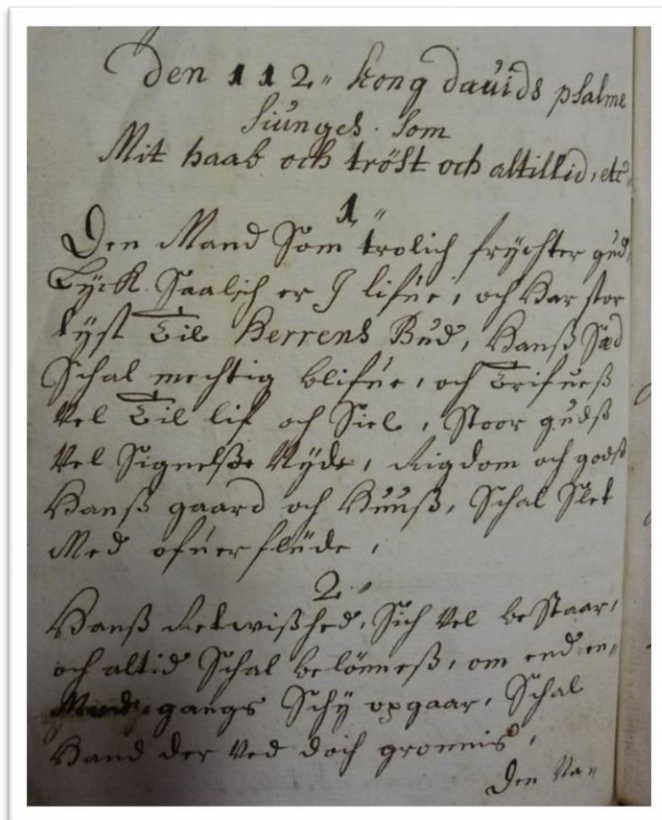 Den 112" kong dauids psalme
siunges. som
Mit haab och tröst och altillid, etc
1"
Den Mand som trolich frychter gud,
Lyck saalich er I lifue, och har stor
lyst Til Herrens Bud, hanß sæd
schal mechtig blifue, och Trifueß
vel Til lif och siel, stoor gudß
vel signelße nyde, Rigdom och godß
hanß gaard och huuß, schal slet
Med ofuerflyde,
2"
hanß Retwißhed, sich vel bestaar,
och altid schal belönneß, om end en"
gangs schy opgaar, schal
hand der ved doch gronnis,
Den Va"